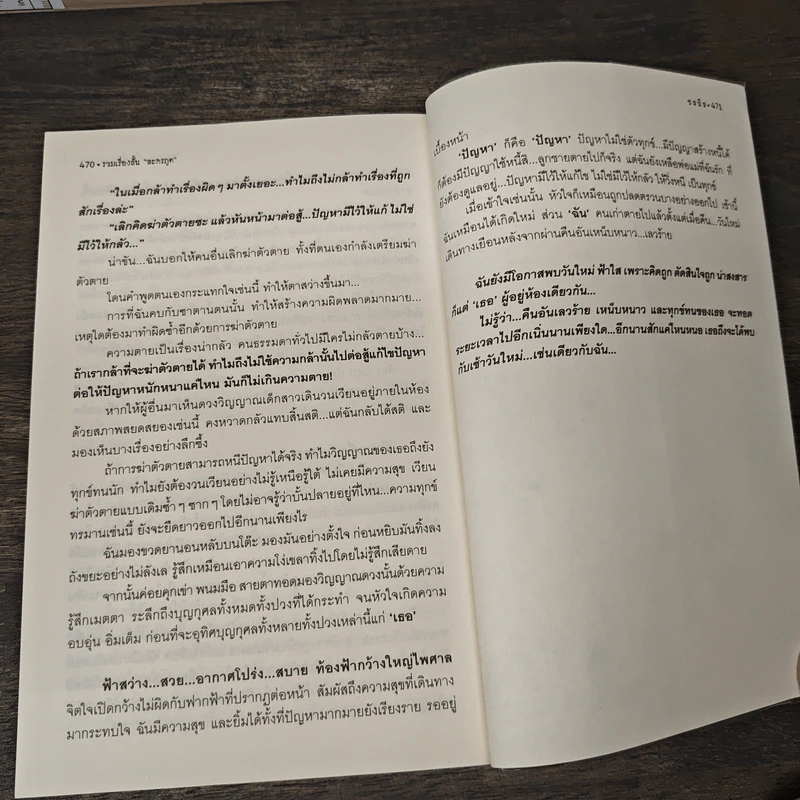 470 • รวมเรื่องสั้น "ละครกุด"
"ในเมื่อกล้าทำเรื่องผิด ๆ มาตั้งเยอะ...ทำไมถึงไม่กล้าทำเรื่องที่ถูก
สักเรื่องล่ะ"
"เลิกคิดฆ่าตัวตายซะ แล้วหันหน้ามาต่อสู้...ปัญหามีไว้ให้แก้ ไม่ใช่
มีไว้ให้กลัว..."
น่าขัน...ฉันบอกให้คนอื่นเลิกฆ่าตัวตาย ทั้งที่ตนเองกำลังเตรียมฆ่า
ตัวตาย
โดนคำพูดตนเองกระแทกใจเช่นนี้ ทำให้ตาสว่างขึ้นมา...
การที่ฉันคบกับซาตานตนนั้น ทำให้สร้างความผิดพลาดมากมาย...
เหตุใดต้องมาทำผิดซ้ำอีกด้วยการฆ่าตัวตาย
ความตายเป็นเรื่องน่ากลัว คนธรรมดาทั่วไปมีใครไม่กลัวตายบ้าง...
ถ้าเรากล้าที่จะฆ่าตัวตายได้ ทำไมถึงไม่ใช้ความกล้านั้นไปต่อสู้แก้ไขปัญหา
ต่อให้ปัญหาหนักหนาแค่ไหน มันก็ไม่เกินความตาย!
หากให้ผู้อื่นมาเห็นดวงวิญญาณเด็กสาวเดินวนเวียนอยู่ภายในห้อง
ด้วยสภาพสยดสยองเช่นนี้ คงหวาดกลัวแทบสิ้นสติ...แต่ฉันกลับได้สติ และ
มองเห็นบางเรื่องอย่างลึกซึ้ง
ถ้าการฆ่าตัวตายสามารถหนีปัญหาได้จริง ทำไมวิญญาณของเธอถึงยัง
ทุกข์ทนนัก ทำไมยังต้องวนเวียนอย่างไม่รู้เหนือรู้ใต้ ไม่เคยมีความสุข เวียน
ฆ่าตัวตายแบบเดิมซ้ำ ๆ ซาก ๆ โดยไม่อาจรู้ว่าบั้นปลายอยู่ที่ไหน...ความทุกข์
ทรมานเช่นนี้ ยังจะยืดยาวออกไปอีกนานเพียงไร
ฉันมองขวดยานอนหลับบนโต๊ะ มองมันอย่างตั้งใจ ก่อนหยิบมันทิ้งลง
ถังขยะอย่างไม่ลังเล รู้สึกเหมือนเอาความโง่เขลาทิ้งไปโดยไม่รู้สึกเสียดาย
จากนั้นค่อยคุกเข่า พนมมือ สายตาทอดมองวิญญาณดวงนั้นด้วยความ
รู้สึกเมตตา ระลึกถึงบุญกุศลทั้งหมดทั้งปวงที่ได้กระทำ จนหัวใจเกิดความ
อบอุ่น อิ่มเต็ม ก่อนที่จะอุทิศบุญกุศลทั้งหลายทั้งปวงเหล่านี้แก่ 'เธอ'
ฟ้าสว่าง...สวย...อากาศโปร่ง...สบาย ท้องฟ้ากว้างใหญ่ไพศาล
จิตใจเปิดกว้างไม่ผิดกับฟากฟ้าที่ปรากฏต่อหน้า สัมผัสถึงความสุขที่เดินทาง
มากระทบใจ ฉันมีความสุข และยิ้มได้ทั้งที่ปัญหามากมายยังเรียงราย รออยู่
• 471
เบื้องหน้า
'ปัญหา' ก็คือ 'ปัญหา' ปัญหาไม่ใช่ตัวทุกข์...มีปัญญาสร้างหนี้ได้
ก็ต้องมีปัญญาใช้หนี้สิ...ลูกชายตายไปก็จริง แต่ฉันยังเหลือพ่อแม่ที่ฉันรัก ที่
ยังต้องดูแลอยู่...ปัญหามีไว้ให้แก้ไข ไม่ใช่มีไว้ให้กลัว ให้วิ่งหนี เป็นทุกข์
เมื่อเข้าใจเช่นนั้น หัวใจก็เหมือนถูกปลดตรวนบางอย่างออกไป เช้านี้
ฉันเหมือนได้เกิดใหม่ ส่วน 'ฉัน' คนเก่าตายไปแล้วตั้งแต่เมื่อคืน...วันใหม่
เดินทางเยือนหลังจากผ่านคืนอันเหน็บหนาว...เลวร้าย
ฉันยังมีโอกาสพบวันใหม่ ฟ้าใส เพราะคิดถูก ตัดสินใจถูก น่าสงสาร
ก็แต่ 'เธอ' ผู้อยู่ห้องเดียวกัน...
ไม่รู้ว่า...คืนอันเลวร้าย เหน็บหนาว และทุกข์ทนของเธอ จะทอด
ระยะเวลาไปอีกเนิ่นนานเพียงใด...อีกนานสักแค่ไหนหนอ เธอถึงจะได้พบ
กับเช้าวันใหม่...เช่นเดียวกับฉัน...